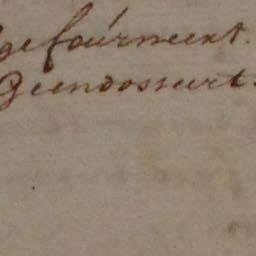 gefourneert.
Geendosseert.